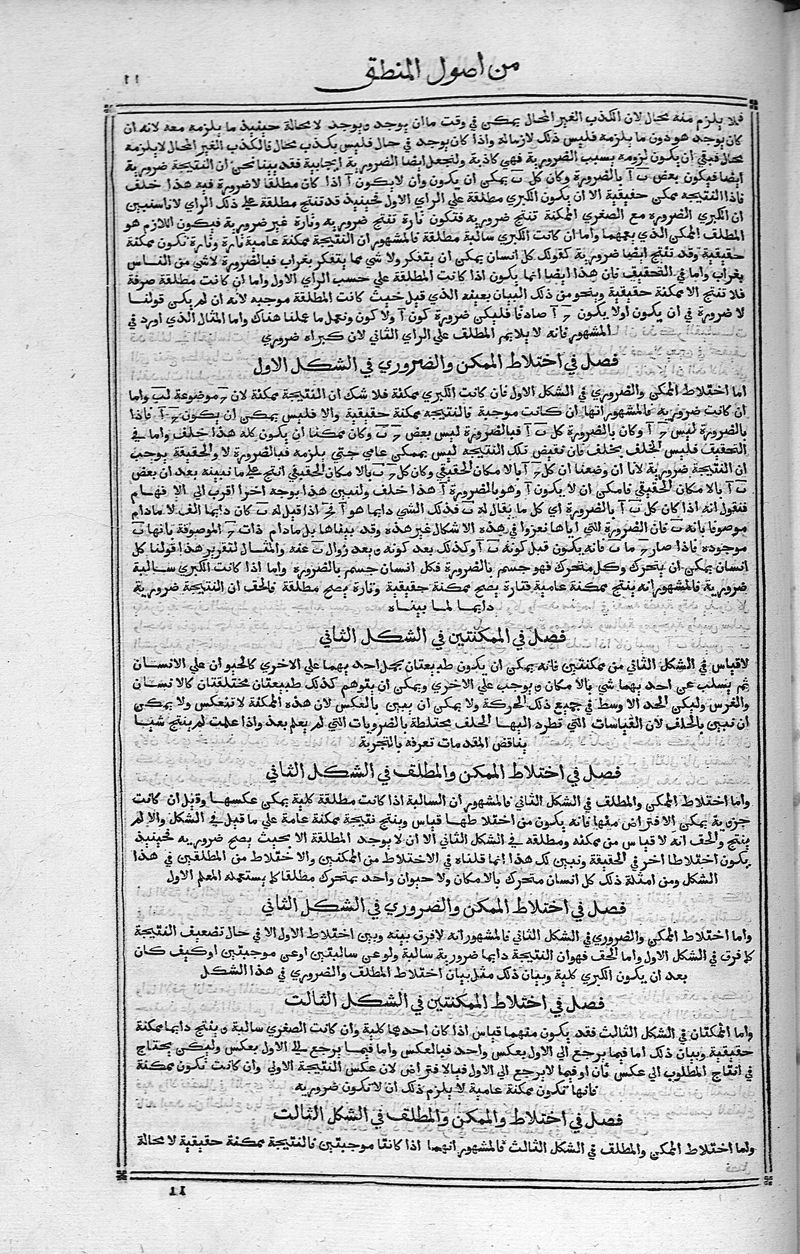 من اصول المنطق
١١
فلا يلزم منه محال لان الكذب الغير المحال يمكن في وقت ما ان يوجد ويوجد لا محالة حينيذ ما يلزمه معه لانه ان
كان يوجد هو دون ما يلزمه فليس ذلك لازما له واذا كان يوجد في حال فليس يكذب محال فالكذب الغير المحال لا يلزمه
محال فبقي ان يكون لزومه بسبب الضرورية فهي كاذبة ولنجعل ايضا الضرورية ايجابية فقد بينا نحن ان النتيجة ضرورية
ايضا فيكون بعض ب آ بالضرورة وكان كل ب يمكن ان يكون وان لا يكون آ اذا كان مطلقا لا ضرورة فيه هذا خلف
فاذا النتيجة ممكن حقيقية الا ان يكون الكبري مطلقة علي الراي الاول فحينيذ قد تنتج مطلقة علي ذلك الراي لانا سنبين
ان الكبري الضرورة مع الصغري الممكنة تنتج ضرورية فتكون تارة تنتج ضرورية وتارة غير ضرورية فيكون اللازم هو
المطلف الممكن الذي يعمهما واما ان كانت الكبري سالبة مطلقة فالمشهور ان النتيجة ممكنة عامية تارة وتارة تكون ممكنة
حقيقية وقد تنتج ايضا ضرورية كقولك كل انسان يمكن ان يتفكر ولا شي مما يتفكر بغراب فبالضرورة لا شي من الناس
بغراب واما في التحقيف فان هذا ايضا انما يكون اذا كانت المطلقة علي حسب الراي الاول واما ان كانت مطلقة صرفة
فلا تنتج الا ممكنة حقيقية وبنحو من ذلك البيان بعينه الذي قيل حيث كانت المطلقة موجبه لانه ان لم يكن قولنا
لا ضرورة في ان يكون او لا يكون ج آ صادقا فليكن ضرورة كون آ ولا كون ونعمل ما عملنا هناك واما المثال الذي اورد في
المشهور فانه لا يلايم المطلف علي الراي الثاني لان كبراه ضروري
فصل في اختلاط الممكن والضروري في الشكل الاول
اما اختلاط الممكن والضروري في الشكل الاول فان كانت الكبري ممكنة فلا شك ان النتيجة ممكنة لان ج موضوعة لب واما
ان كانت ضرورية فالمشهور انها ان كانت موجبة فالنتيجه ممكنة حقيقية والا فليس يمكن ان يكون ج آ فاذا
بالضرورة ليس ج آ وكان بالضرورة كل ب آ فبالضرورة ليس بعض ج ب وكان ممكنا ان يكون كله هذا خلف واما في
التحقيف فليس الخلف بخلف فان نقيض تلك النتيجة ليس بممكني عامي حتي يلزمه فبالضرورة لا والحقيقة يوجب
ان النتيجة ضرورية لانا ان وضعنا ان كل ج آ بالامكان الحقيقي وكان كل ج ب بالامكان الحقيقي انتج علي ما نبينه بعد ان بعض
ب آ بالامكان الحقيقي فامكن ان لا يكون آ وهو بالضرورة آ هذا خلف ولنبين هذا بوجه اخر اقرب الي الافهام
فنقول انه اذا كان كل ب آ بالضرورة اي كل ما يقال له ب فذلك الشي دايما هو آ اذا قيل له ب كان دايما الف لا مادام
موصوفا بانه ب فان الضرورة التي اياها نعزوا في هذه الاشكال غير هذه وقد بيناها بل مادام ذات ج الموصوفة بانها ب
موجوده فاذا صار ج ما ب فانه يكون قبل كونه ب آ وكذلك بعد كونه وبعد زوال ب عنه والمثال لتقرير هذا قولنا كل
انسان يمكن ان يتحرك وكل متحرك فهو جسم بالضرورة فكل انسان جسم بالضرورة واما اذا كانت الكبري سالبة
ضرورية فالمشهور انه ينتج ممكنة عامية فتارة يصح ممكنة حقيقية وتارة يصح مطلقة فالحف ان النتيجة ضرورية
دايما لما بيناه
فصل في الممكنتين في الشكل الثاني
لا قياس في الشكل الثاني من ممكنتين فانه يمكن ان يكون طبيعتان يحمل احد بهما علي الاخري كالحيوان علي الانسان
ثم يسلب عن احد بهما شي بالامكان ويوجب علي الاخري ويمكن ان يتوهم كذلك طبيعتان مختلفتان كالانسان
والفرس وليكن الحد الاوسط في جميع ذلك الحركة ولا يمكن ان يبين بالعكس لان هذه الممكنة لا تنعكس ولا يمكن
ان نبين بالخلف لان القياسات التي تطرد اليها الخلف مختلطة بالضرويات التي لم يعلم بعد واذا علمت لم ينتج شيا
يناقض المقدمات تعرفه بالتجربة
فصل في اختلاط الممكن والمطلف في الشكل الثاني
واما اختلاط الممكن والمطلف في الشكل الثاني فالمشهور ان السالبة اذا كانت مطلقة كلية يمكن عكسها وقبل ان كانت
جزءية يمكن الافتراض منها فانه يكون من اختلاطها قياس وينتج نتيجة ممكنة عامة علي ما قيل في الشكل والا لم
ينتج والحف انه لا قياس من ممكنه ومطلقه في الشكل الثاني الا ان لا يوجد المطلقة الا بحيث يصح ضروريه فحينيذ
يكون اختلاطا اخر في الحقيقة ونبين لك هذا انما قلناه في الاختلاط من الممكنين والاختلاط من المطلقين في هذا
الشكل ومن امثلة ذلك كل انسان متحرك بالامكان ولا حيوان واحد بمتحرك مطلقا كما يستعمله المعلم الاول
فصل في اختلاط الممكن والضروري في الشكل الثاني
واما اختلاط الممكن والضروري في الشكل الثاني فالمشهور انه لا فرق بينه وبين اختلاط الاول الا في حال تضعيف النتيجة
كما فرق في الشكل الاول واما الحف فهو ان النتيجة دايما ضرورية سالبة ولو عن سالبتين او عن موجبتين او كيف كان
بعد ان يكون الكبري كلية وبيان ذلك مثل بيان اختلاط المطلف والضروري في هذا الشكل
فصل في اختلاط الممكنتين في الشكل الثالت
واما الممكنتان في الشكل الثالث فقد يكون منهما قياس اذا كان احدهما كلية وان كانت الصغري سالبة وينتج دايما ممكنة
حقيقية وبيان ذلك اما فيما يرجع الي الاول بعكس واحد فبالعكس واما فيما يرجع الي الاول بعكس وليكن يحتاج
في انتاج المطلوب الي عكس ثان او فيما لا يرجع الي الاول فبالافتراض لان عكس النتيجة الاولي وان كانت تكون ممكنة
فانها تكون ممكنة عامية لا يلزم ذلك ان لا تكون ضروريه
فصل في اختلاط والممكن والمطلف في الشكل الثالت
واما اختلاط الممكن والمطلف في الشكل الثالث فالمشهور انهما اذا كانتا موجبتين فالنتيجة ممكنة حقيقية لا محالة
فصل
11